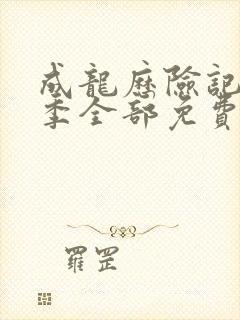 成龍歷險記
季全部免費
羅罡